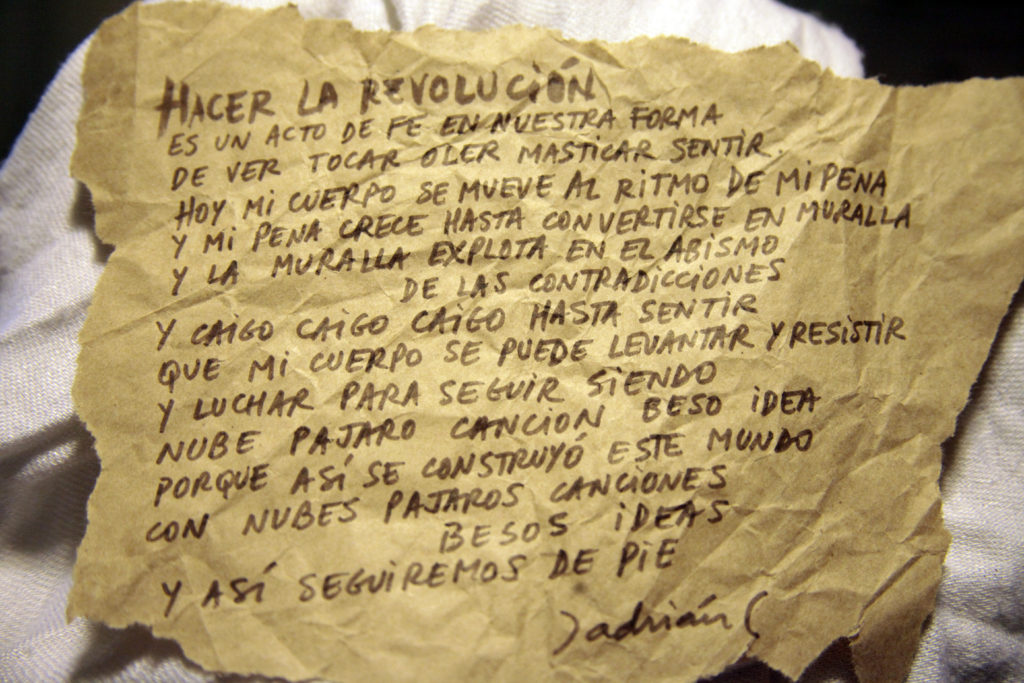 HACER LA REVOLUCIÓN
ES UN ACTO DE FE EN NUESTRA FORMA
DE VER TOCAR OLER MASTICAR SENTIR.
HOY MI CUERPO SE MUEVE AL RITMO DE MI PENA
Y MI PENA CRECE HASTA CONVERTIRSE EN MURALLA
Y LA MURALLA EXPLOTA EN EL ABISMO
DE LAS CONTRADICCIONES
Y CAIGO CAIGO CAIGO HASTA SENTIR
QUE MI CUERPO SE PUEDE LEVANTAR Y RESISTIR
Y LUCHAR PARA SEGUIR SIENDO
NUBE PAJARO CANCION BESO IDEA
PORQUE ASÍ SE CONSTRUYÓ ESTE MUNDO
CON NUBES PAJAROS CANCIONES
BESOS IDEAS
Y ASÍ SEGUIREMOS DE PIE
)adrián(